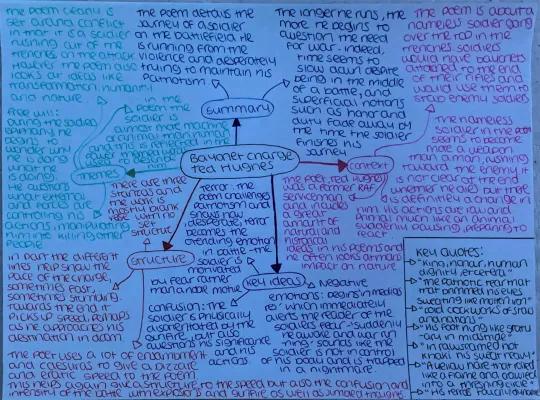 The poem clearly is
set around conflict
in that it is a soldier
rushing out of the
trenches on the attack
However the poem also
looks at ideas like
transformation, humanity
and nature
The poem details the
journey of a soldier
on the battlefield. He
is running from the
violence and desperately
trying to maintain his
Patriotism
The longer he runs, the
more he begins to
question the need
for war. Indeed,
time seems to
slow down despite
being in the middle
of a battle, and
superficial notions
such as honor and
duty fade away by
the time the soldier
finishes his
journey
The poem is about a
nameless soldier going
over the top in the
trenches soldiers
would have bayonets
attached to the end
of their rifles and
would use them to
stab enemy soldiers
summary
Bayonet charge
Ted Hughes
Themes
context
structure
key ideas
Free will:
during the soldiers
epiphany he
begins to
wonder why
he is doing
what he
is doing
He questions
what external
forces are
controlling his
actions, manipulating
him into killing other
people
in the
poem the
soldier is
almost more machine
or animal than human
and this is reflected in
the
The nameless
soldier in the poem
seems to become
more a weapon
than a man, rushing
toward the enemy it
is not clear at the end
whether he dies but there
is definitely a change in
him His actions are raw and
Primal much like an animal
suddenly pausing, preparing to
react
The poet, Ted Hughes
was a former RAF
serviceman
and includes
a great
amount of
natural and
historical
ideas in his poems and
he often looks at man's
impact on nature
There are three
stanzas and
the work is
mostly blank
verse with no
set
structure
In part the different
lines help show the
pace of the charge,
sometimes fast,
sometimes stumbling.
towards the end it
picks up speed, perhaps
as he approaches his
destination in death
The poet uses a lot of enjambment
and caesuras to give a bizzare
and erratic speed to the poem
This helps again give a structure to the speed but also the confusion and
intensity of the battle with explosions and gunfire as well as jumbled thoughts
Terror: the
poem challenges
Patriotism and
shows how
desperate terror
becomes the
overriding emotion
in battle - the
soldier is
motivated
by fear rather
than a more noble
confusion: the
soldier is physically
disorientated by the
gunfire, but also
questions his significance
and his
actions
negative
emotions: begins in medias
res which immediately
alerts the reader of the
soldiers fear - "suddenly
he awoke and was run-
ning" sounds like the
soldier is not in control
of his body and is trapped
in a nightmare.
Key Quotes:
"King, honor, human
dignity, etcetera"
"The patriotic tear that
had brimmed his eyes
sweating like molten iron"
"cold clockwork of stars
and nations"
"His foot hung like statu-
ary in midstride"
"He was running
raw-seamed hot
khaki, his sweat heavy"
"A yellow hare that rolled
like a flame and crawled
into a threshing circle"